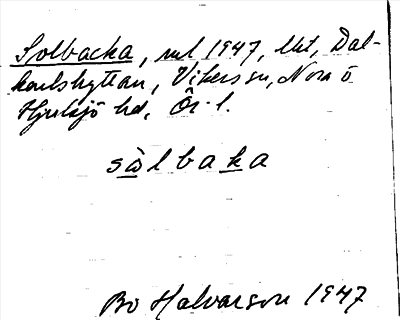 Solbacka, nul 1947, lht, Dal-
karlshyttan, Vikers sn, Nora o
Hjulsjö hd, Ör. l.
sòlbaka
Bo Halvarson 1947